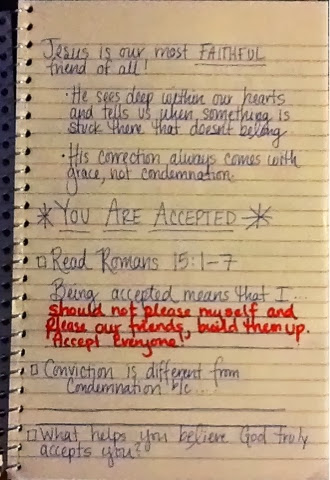 Jesus is our most FAITHFUL
friend of all!
· He sees deep within our hearts
and tells us when something is
stuck there that doesn't belong
· His correction always comes with
grace, not condemnation.
YOU ARE ACCEPTED
Read Romans 15:1-7
Being accepted means that I...
should not please myself and
please our friends, build them up.
Accept Everyone!
Conviction is different from
Condemnation b/c...
What helps you believe God truly
accepts you?